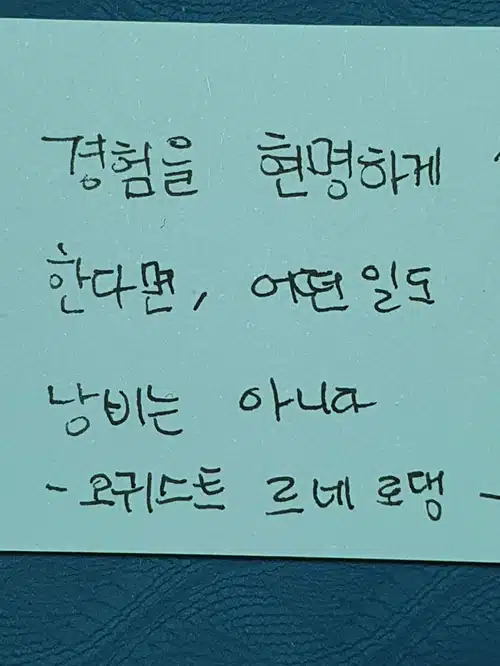 경험을 현명하게
한다면, 어떤 일도
낭비는 아니다
- 오귀스트 르네 로댕 -